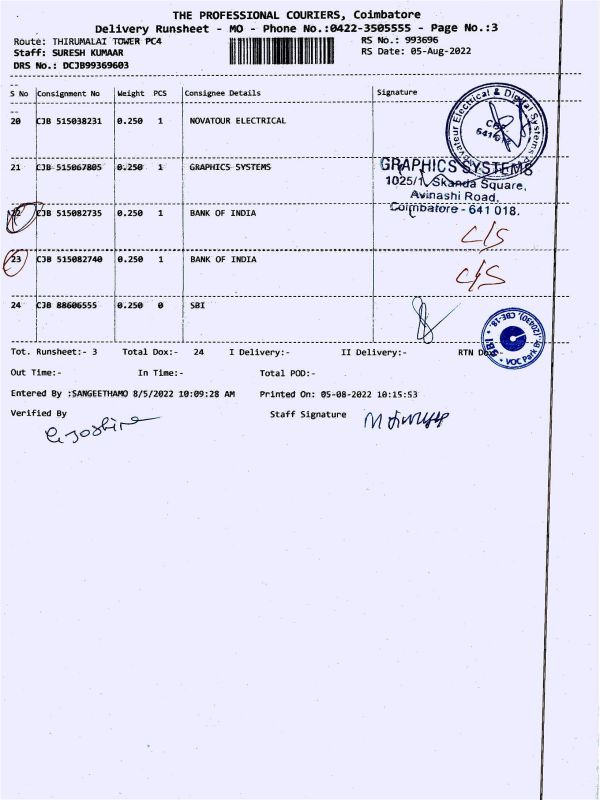 THE PROFESSIONAL COURIERS, Coimbatore
Delivery Runsheet - MO - Phone No.:0422-3505555 - Page No.:3
Route: THIRUMALAI TOWER PC4 RS No.: 993696
Staff: SURESH KUMAAR RS Date: 05-Aug-2022
DRS No.: DCJB99369603
S No Consignment No Weight PCS Consignee Details Signature
20 CJB 515038231 0.250 1 NOVATOUR ELECTRICAL
Electrical & Digital Systems
641018
21 CJB 515067805 0.250 1 GRAPHICS SYSTEMS
GRAPHICS SYSTEMS
1025/1, Skanda Square,
Avinashi Road,
Coimbatore - 641 018.
22 CJB 515082735 0.250 1 BANK OF INDIA C/S
23 CJB 515082740 0.250 1 BANK OF INDIA C/S
24 CJB 88606555 0.250 0 SBI
SBI VOC Park Br.(20430), CBE-18.
Tot. Runsheet:- 3 Total Dox:- 24 I Delivery:- II Delivery:- RTN Dox:-
Out Time:- In Time:- Total POD:-
Entered By :SANGEETHAMO 8/5/2022 10:09:28 AM Printed On: 05-08-2022 10:15:53
Verified By Staff Signature